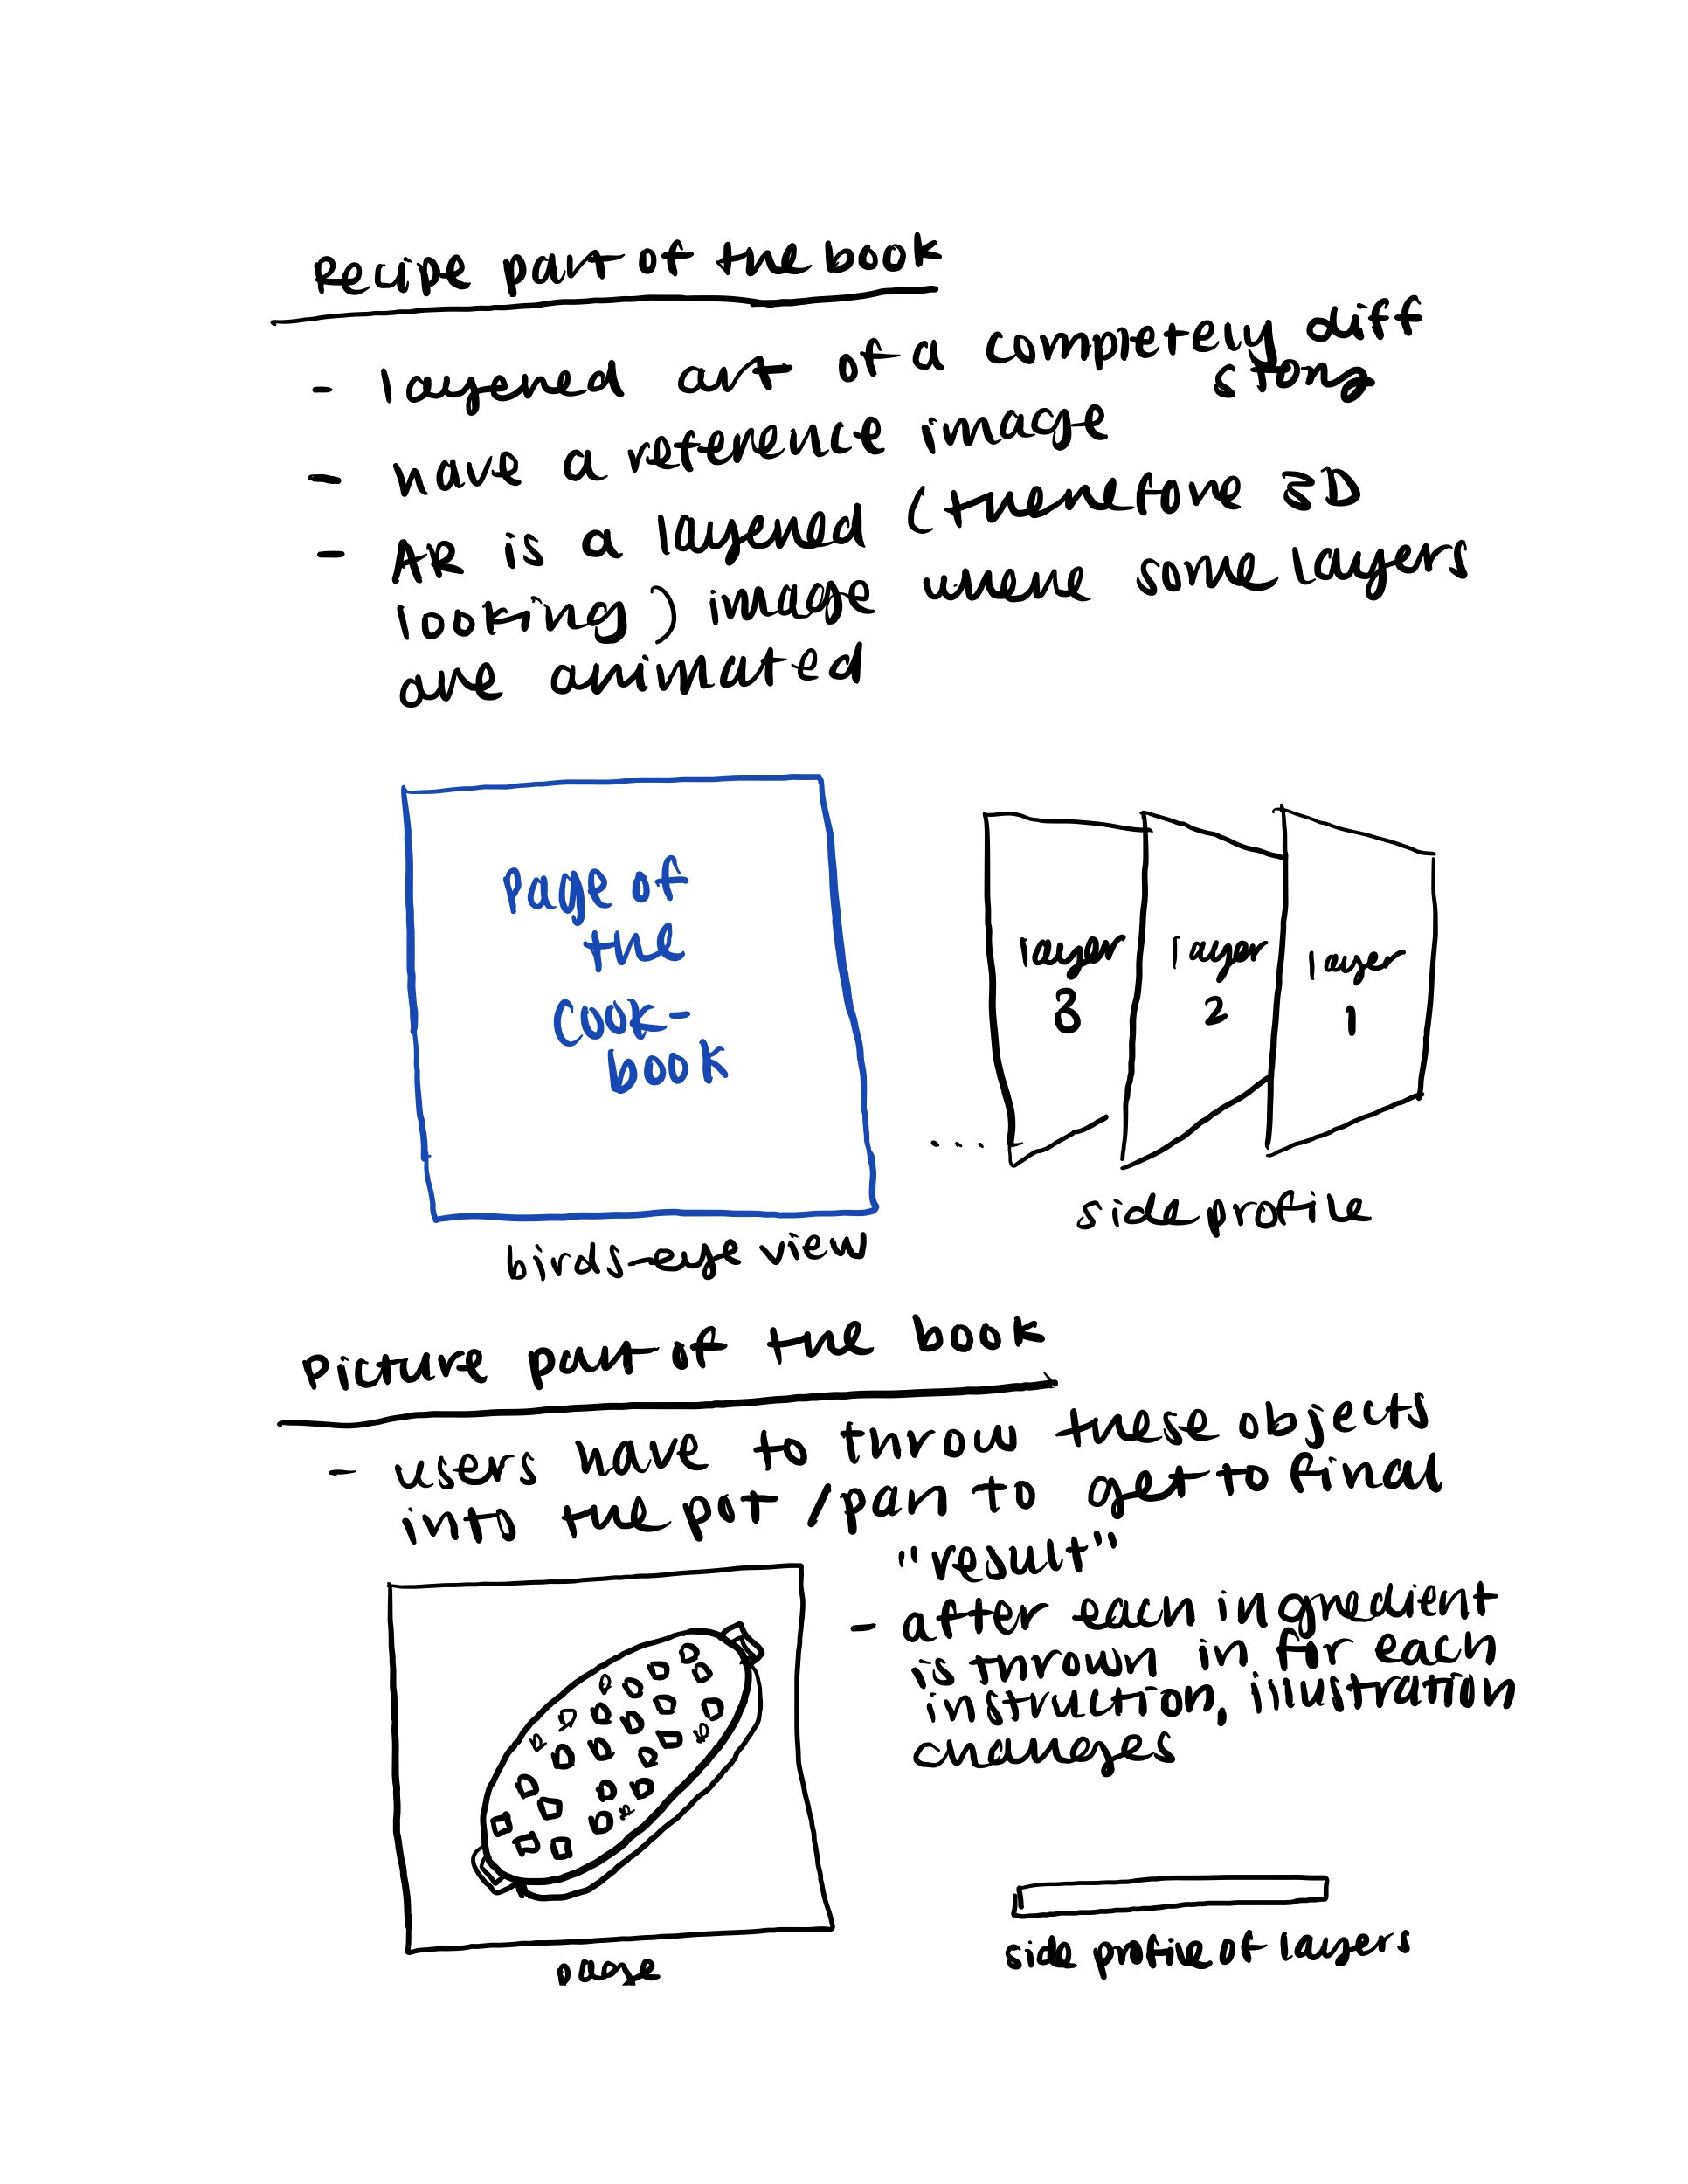 Recipe part of the book
- layered art of a completely diff
story
- have a reference image
- AR is a layered (therefore 3D
looking) image where some layers
are animated
Page of
the
cook-
book
layer
3
layer
2
layer
1
....
side profile
birds-eye view
Picture part of the book
- users have to throw these objects
into the pot/pan to get to final
"result"
- after each ingredient
is thrown in for each
instruction, illustration
changes
page
side profile of layers